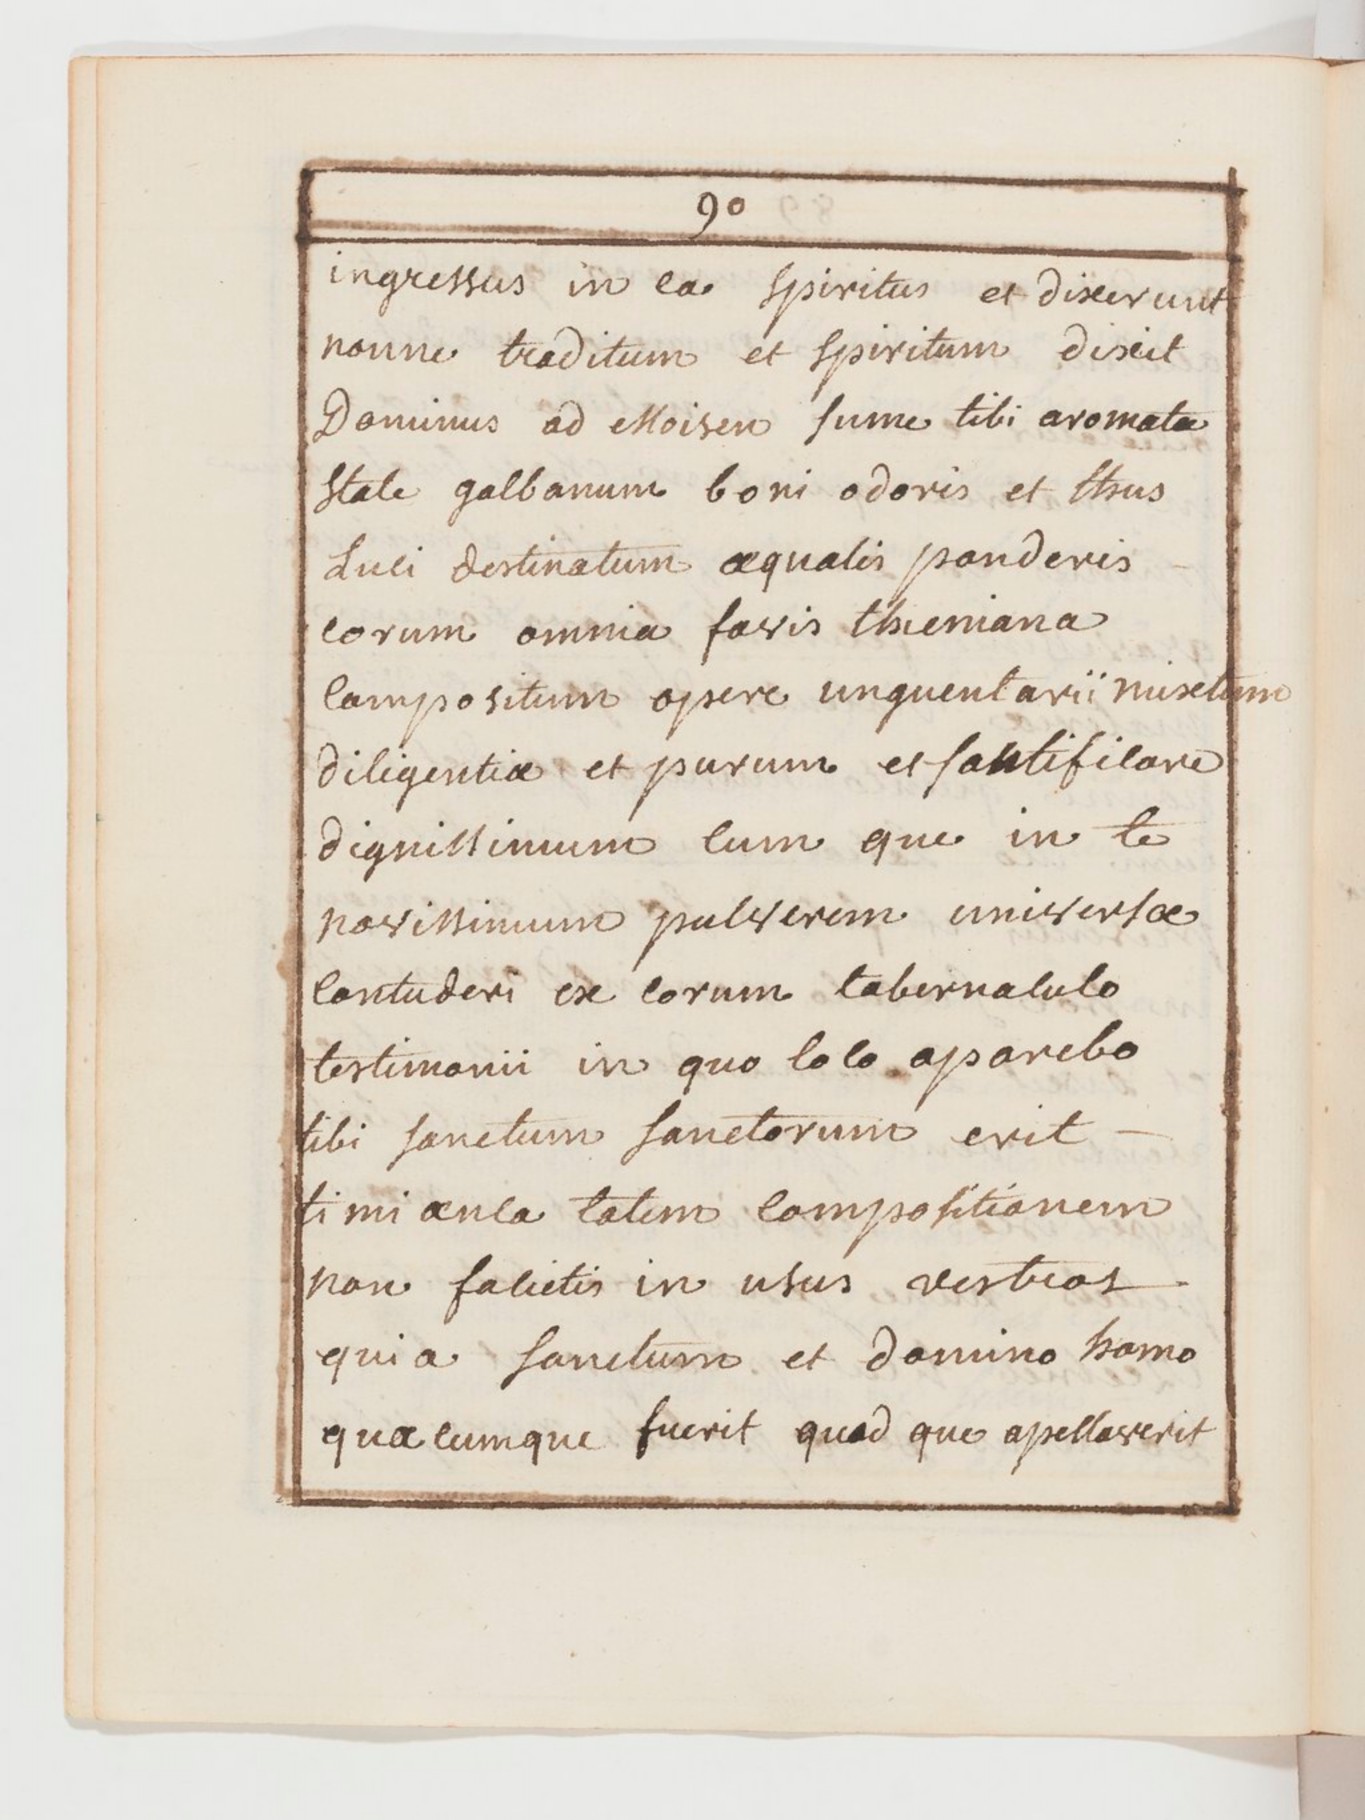 90
ingressus in ea spiritus et dixerunt
nonne traditum et spiritum dixit
Dominus ad Moisen sume tibi aromata
stale galbanum boni odoris et thus
luci destinatum æqualis ponderis
eorum omnia favis thieniana
compositum opere unguentarii mixtum
diligentiæ et purum et santificare
dignissimum cum que in te
novissimum pulverem universæ
contuderi ex eorum tabernaculo
testimonii in quo loco aparebo
tibi sanctum sanctorum erit
timiænca talem compositionem
non facietis in usus vestros
quia sanctum et domino homo
quæcumque fuerit quod que apellaverit